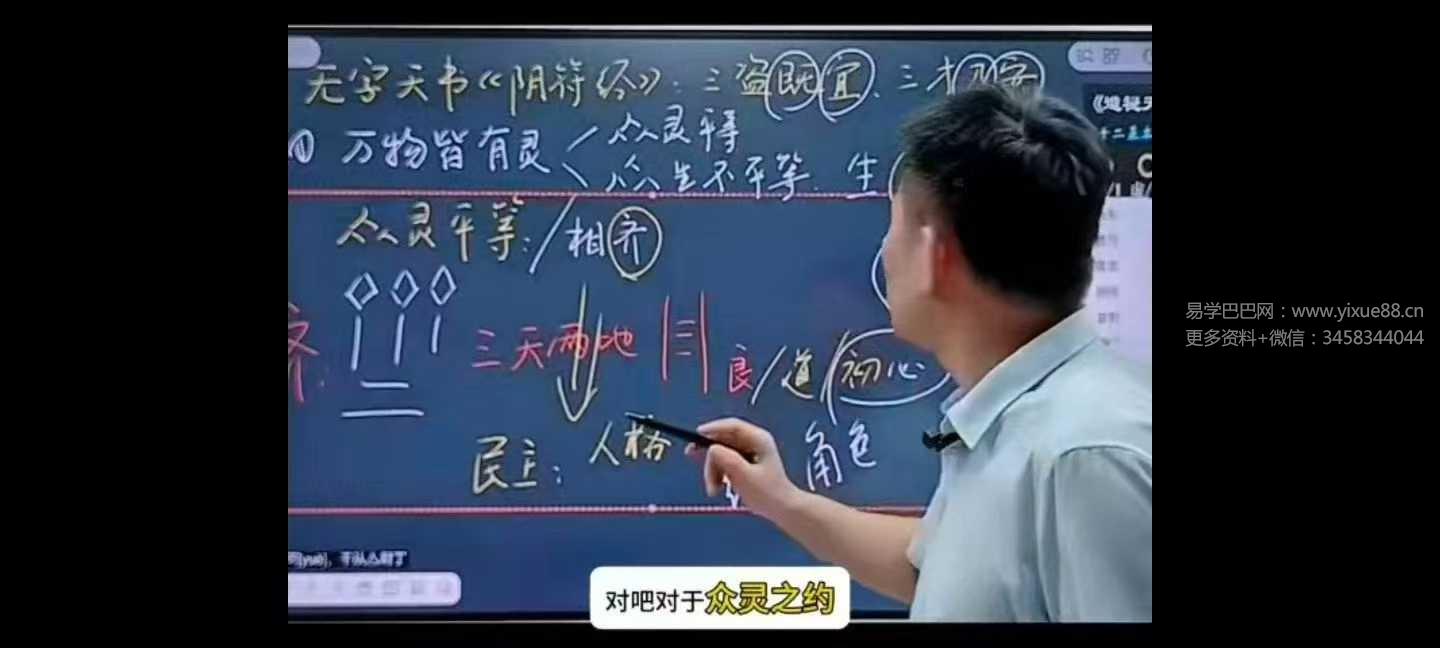 无字天书《阴符经》：三盗既宜、三才
① 万物皆有灵
众灵平等
众生不平等. 生
众灵平等: / 相齐
齐:
三天两地
良/道/初心
民主: 人格
角色
对吧对于众灵之约
易学巴巴网：www.yixue88.cn
更多资料+微信：3458344044